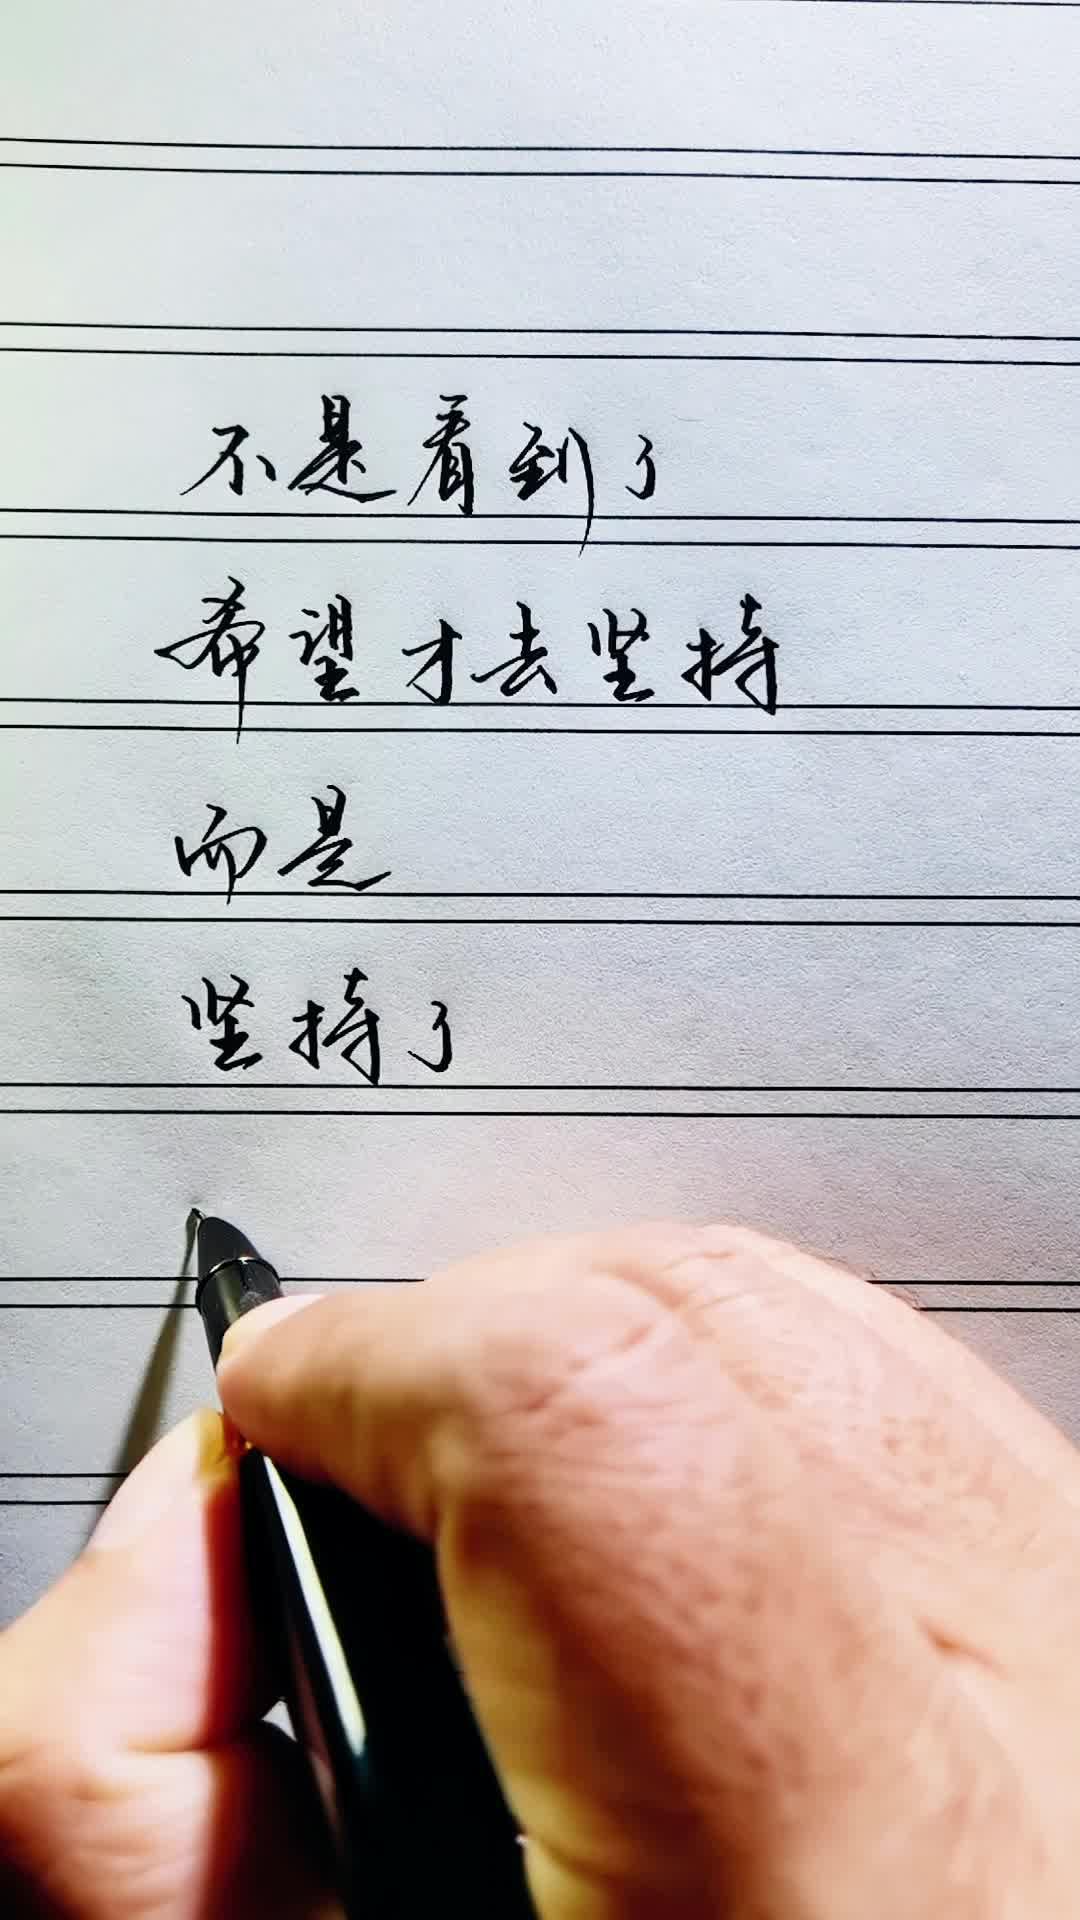 不是看到了
希望才去坚持
而是
坚持了